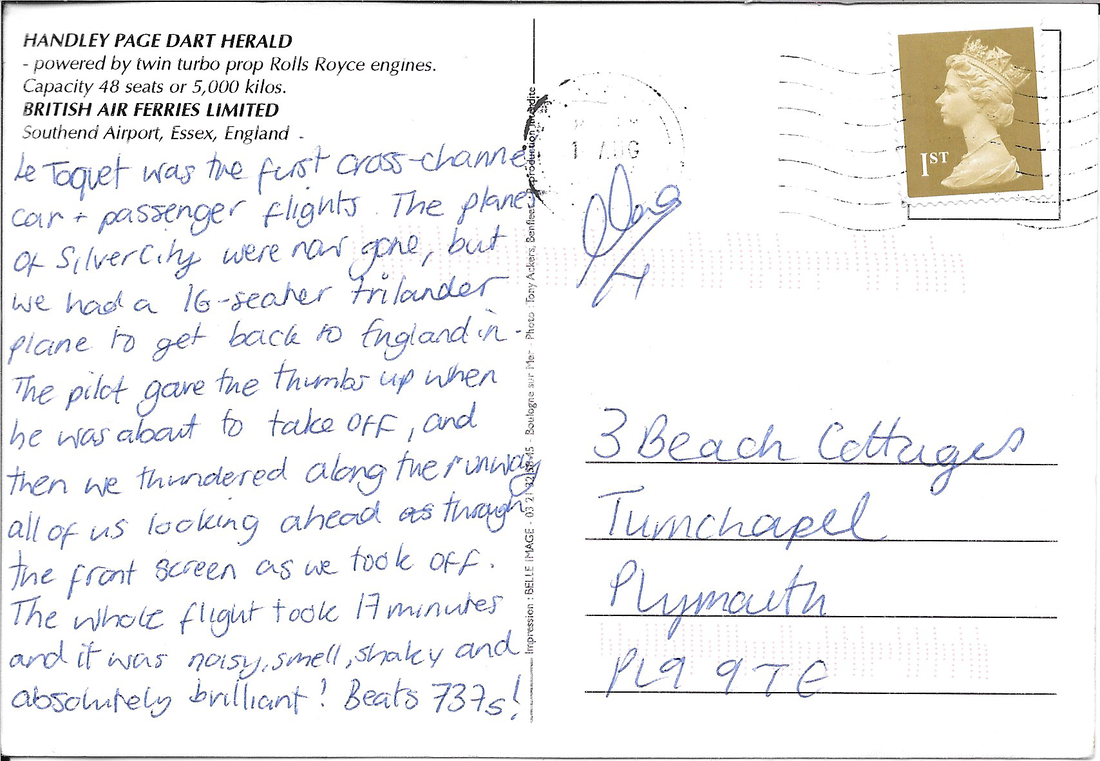 HANDLEY PAGE DART HERALD
- powered by twin turbo prop Rolls Royce engines.
Capacity 48 seats or 5,000 kilos.
BRITISH AIR FERRIES LIMITED
Southend Airport, Essex, England
Le Toquet was the first cross-channel
car + passenger flights. The planes
of Silver City were now gone, but
we had a 16-seater trilander
plane to get back to England in -
The pilot gave the thumbs up when
he was about to take off, and
then we thundered along the runway
all of us looking ahead as through
the front screen as we took off.
The whole flight took 17 minutes
and it was noisy, smell, shaky and
absolutely brilliant! Beats 737s!
Impression : BELLE IMAGE - 03 21 - Boulogne sur Mer - Photo : Tony Ackers, Benfleet - Reproduction interdite
1 AUG
1ST
3 Beach Cottages
Turnchapel
Plymouth
PL9 9TE